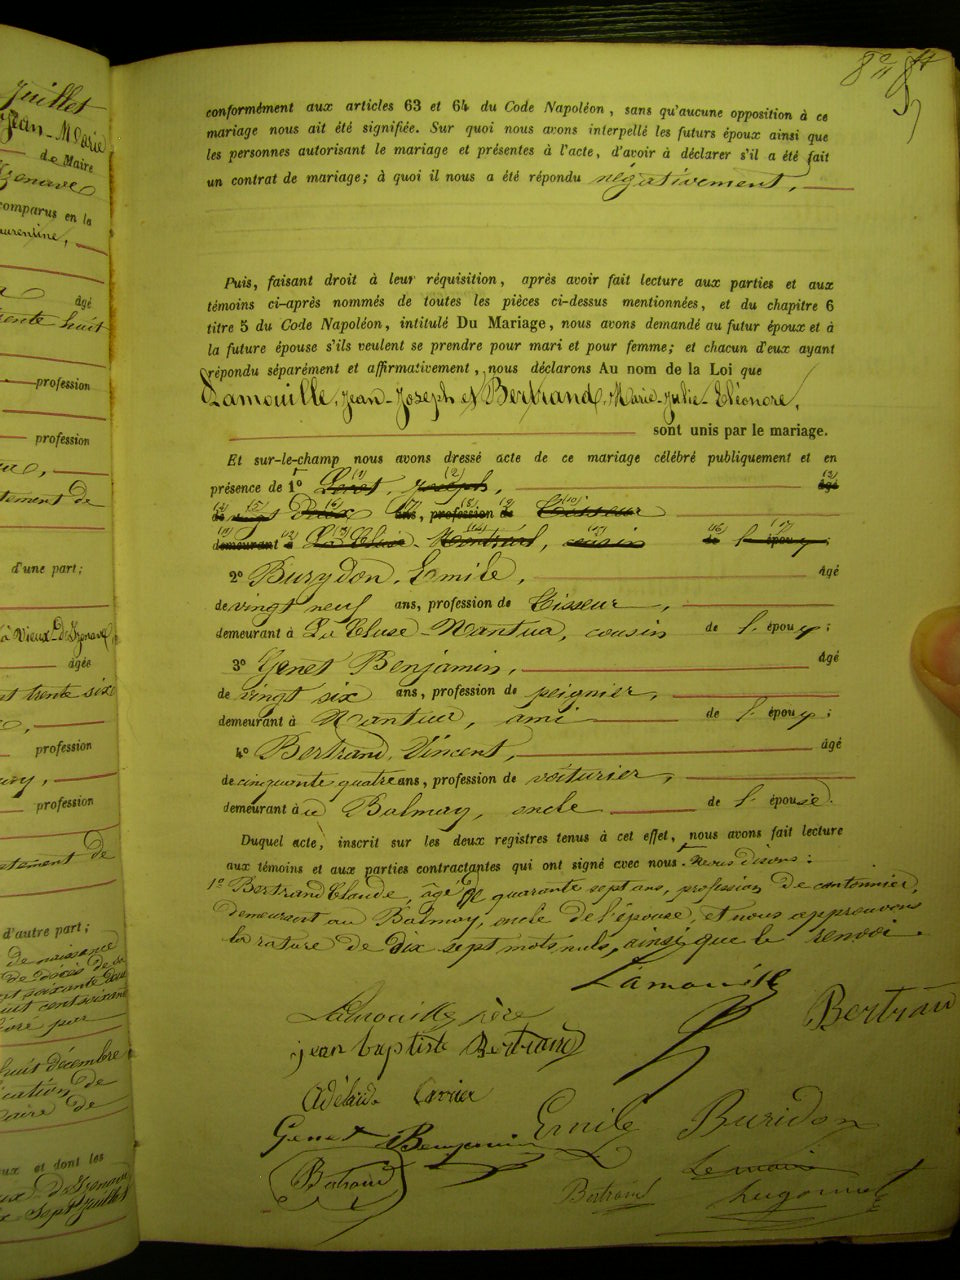 Juillet
Jean-Marie
de Maire
Izenave
comparus en la
âgé
trente huit
profession
profession
tement de
d'une part;
à Vieux-d'Izenave
âgée
trente six
profession
profession
tement de
d'autre part;
de naissance
de décès de
huit décembre
cation de
aire de
ux et dont les
Sept Juillet
conformément aux articles 63 et 64 du Code Napoléon, sans qu'aucune opposition à ce
mariage nous ait été signifiée. Sur quoi nous avons interpellé les futurs époux ainsi que
les personnes autorisant le mariage et présentes à l'acte, d'avoir à déclarer s'il a été fait
un contrat de mariage; à quoi il nous a été répondu négativement,
Puis, faisant droit à leur réquisition, après avoir fait lecture aux parties et aux
témoins ci-après nommés de toutes les pièces ci-dessus mentionnées, et du chapitre 6
titre 5 du Code Napoléon, intitulé Du Mariage, nous avons demandé au futur époux et à
la future épouse s'ils veulent se prendre pour mari et pour femme; et chacun d'eux ayant
répondu séparément et affirmativement, nous déclarons Au nom de la Loi que
Lamouille, Jean-Joseph et Bertrand, Marie-Julie-Eléonore,
sont unis par le mariage.
Et sur-le-champ nous avons dressé acte de ce mariage célébré publiquement et en
présence de 1º Joseph, âgé
de vingt Deux ans, profession de Tisseur
demeurant à La Cluse - Montréal, cousin de l'époux;
2º Burydon, Emile, âgé
de vingt neuf ans, profession de Tisseur,
demeurant à La Cluse-Nantua, cousin de l'époux;
3º Genet Benjamin, âgé
de vingt six ans, profession de peignier,
demeurant à Nantua, ami de l'époux;
4º Bertrand, Vincent, âgé
de cinquante quatre ans, profession de voiturier,
demeurant à u Balmay, oncle de l'épouse.
Duquel acte, inscrit sur les deux registres tenus à cet effet, nous avons fait lecture
aux témoins et aux parties contractantes qui ont signé avec nous. Nous disons:
1º Bertrand Claude, âgé de quarante sept ans, profession de cantonnier,
demeurant au Balmay, oncle de l'épouse, et nous approuvons
la rature de dix sept mots nuls, ainsi que le renvoi.
Lamouille
Lamouille père
Bertrand
jean baptiste Bertrand
Adélaide Carrier
Genet Benjamin
Emile Buridon
Bertrand
Le maire
Bertrand
hugonnet